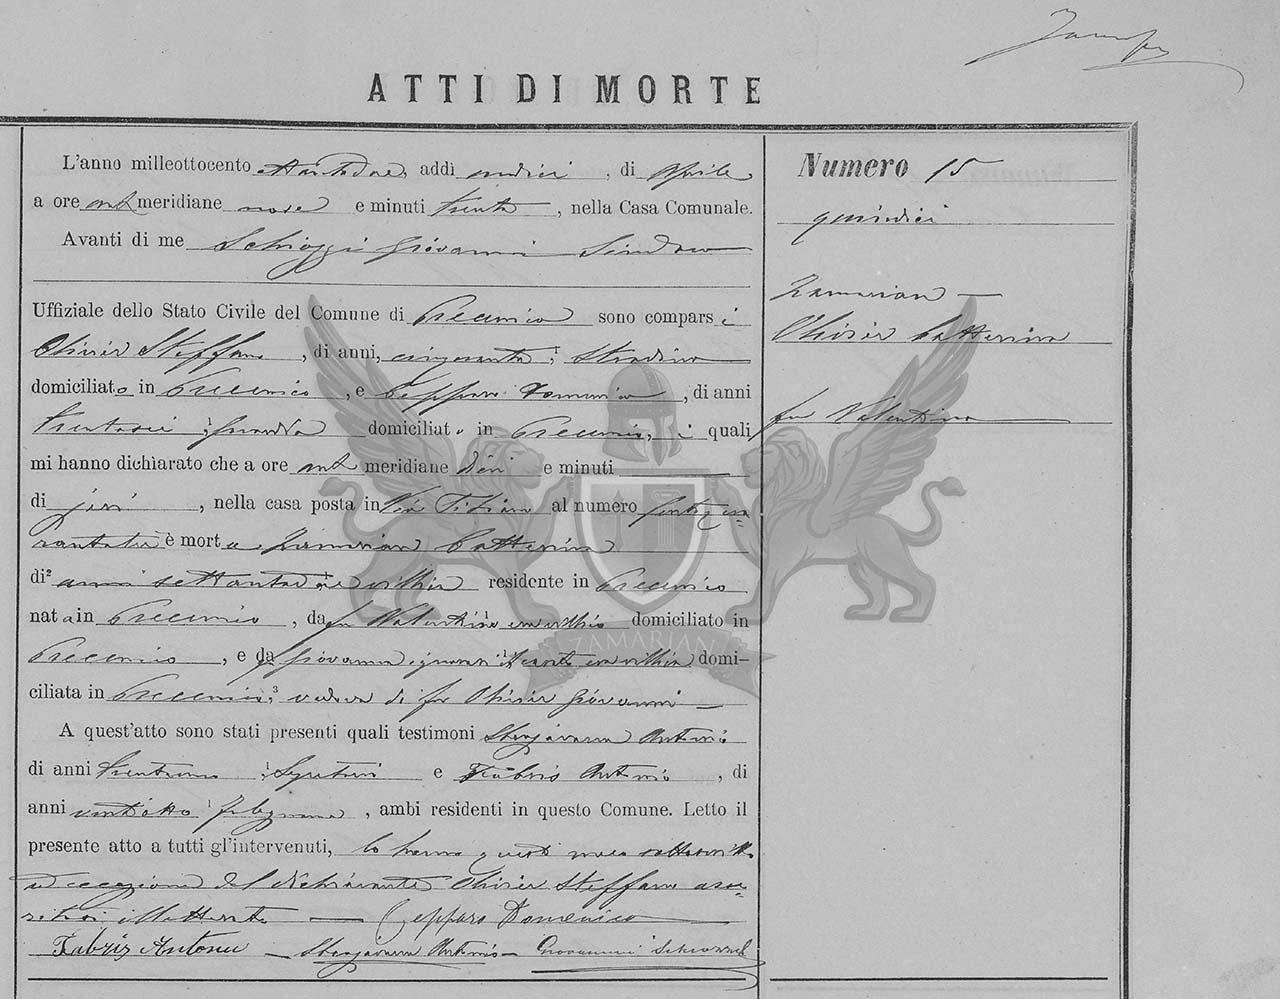 ATTI DI MORTE
L'anno milleottocento ottantadue, addì undici, di Aprile
a ore ant meridiane nove e minuti trenta, nella Casa Comunale.
Avanti di me Schiozzi Giovanni Sindaco
Uffiziale dello Stato Civile del Comune di Precenico sono comparsi
Olivier Steffano, di anni, cinquanta, Stradino
domiciliato in Precenico, e Ceppparo Domenico, di anni
trentasei, Guardia domiciliato in Precenico, i quali
mi hanno dichiarato che a ore ant meridiane dieci e minuti
di jeri, nella casa posta in Via Titiano al numero
è morta Zamarian Catterina
di anni settantadue villica residente in Precenico
nata in Precenico, da fu Valentino era villico domiciliato in
Precenico, e da fu Giovanna era villica domi-
ciliata in Precenico, vedova di fu Olivier Giovanni
A quest'atto sono stati presenti quali testimoni Antonio
di anni trentuno e Fabris Antonio, di
anni ventiotto falegname, ambi residenti in questo Comune. Letto il
presente atto a tutti gl'intervenuti, lo hanno questi meco sottoscritto
ad eccezione del dichiarante Olivier Steffano
illetterato Ceppparo Domenico
Fabriz Antonio Antonio Giovanni Schiozzi
Numero 15
quindici
Zamarian
Olivier Catterina
fu Valentino
ZAMARIAN